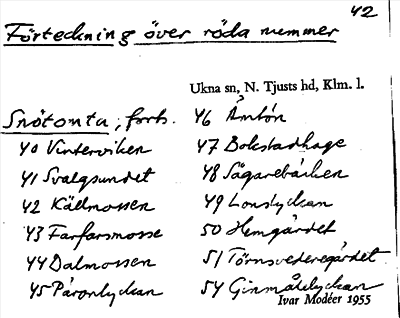 42
Förteckning över röda nummer
Ukna sn, N. Tjusts hd, Klm. l.
Snötomta, forts.
40 Vinterviken
41 Svalgsundet
42 Källmossen
43 Farfarsmosse
44 Dalmossen
45 Päronlyckan
46 Ämtön
47 Bokstadhage
48 Sågarebacken
49 Lonslyckan
50 Hemgärdet
51 Törnsvedere gärdet
54 Ginmålslyckan
Ivar Modéer 1955